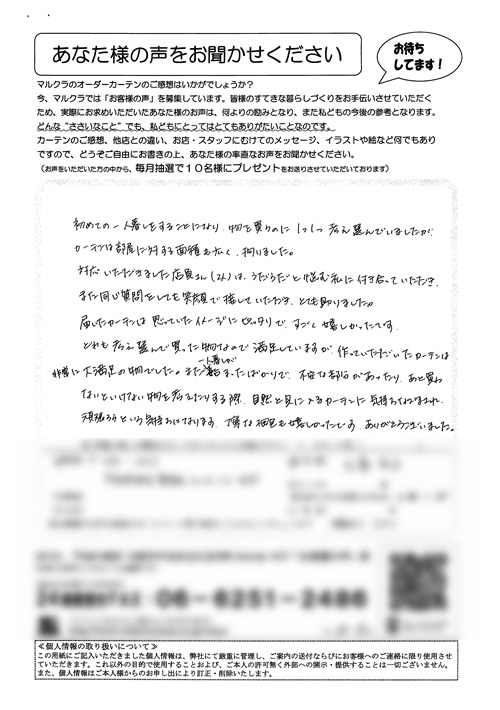 あなた様の声をお聞かせください
お待ち
してます！
マルクラのオーダーカーテンのご感想はいかがでしょうか？
今、マルクラでは「お客様の声」を募集しています。皆様のすてきな暮らしづくりをお手伝いさせていただく
ため、実際にお求めいただいたあなた様のお声は、何よりの励みとなり、また私どもの今後の参考となります。
どんな“ささいなこと”でも、私どもにとってはとてもありがたいことなのです。
カーテンのご感想、他店との違い、お店・スタッフにむけてのメッセージ、イラストや絵など何でもあり
ですので、どうぞご自由にお書きの上、あなた様の率直なお声をお聞かせください。
（お声をいただいた方の中から、毎月抽選で１０名様にプレゼントをお送りさせていただいております）
初めての一人暮しをすることになり、物を買うのに1つ1つ考え選んでいましたが、
カーテンは部屋に対する面積も広く、拘りました。
対応いただきました店員さんは、うだうだと悩む私に付き合っていただき、
また同じ質問をしても笑顔で接していただき、とても助りました。
届いたカーテンは思っていたイメージにピッタリで、すごく嬉しかったです。
どれも考え選んで買った物なので満足していますが、作っていただいたカーテンは
非常に大満足の物でした。まだ一人暮しが始まったばかりで、不安な部分があったり、あと買わ
ないといけない物を考えたりする際、自然と目に入るカーテンに気持ちがなごまされ、
頑張ろうという気持ちになります。丁寧な梱包も嬉しかったです。ありがとうございました。
06-6251-2486
≪個人情報の取り扱いについて≫
この用紙にご記入いただきました個人情報は、弊社にて厳重に管理し、ご案内の送付ならびにお客様へのご連絡に限り使用させ
ていただきます。これ以外の目的で使用することおよび、ご本人の許可無く外部への開示・提供することは一切ございません。
また、個人情報はご本人様からのお申し出により訂正・削除いたします。